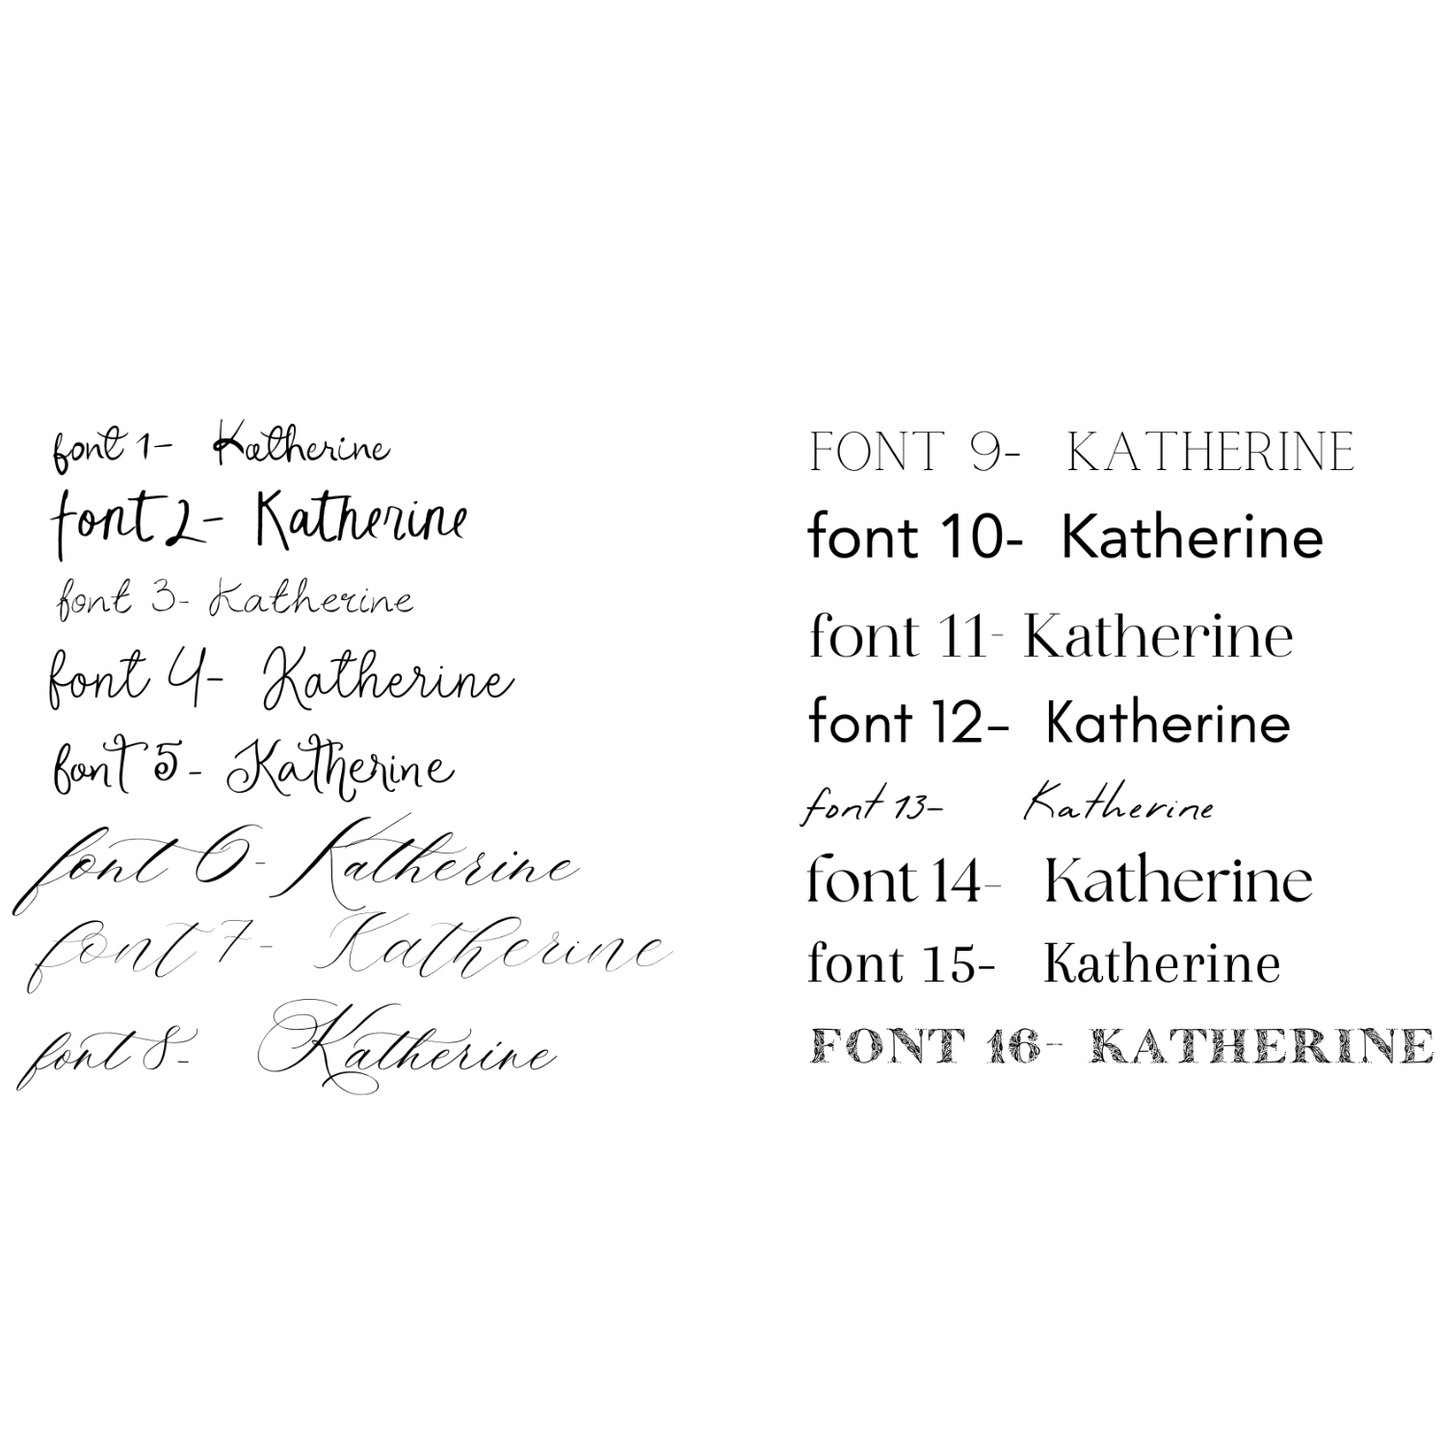 font 1- Katherine
font 2- Katherine
font 3- Katherine
font 4- Katherine
font 5- Katherine
font 6- Katherine
font 7- Katherine
font 8- Katherine
FONT 9- KATHERINE
font 10- Katherine
font 11- Katherine
font 12- Katherine
font 13- Katherine
font 14- Katherine
font 15- Katherine
FONT 16- KATHERINE